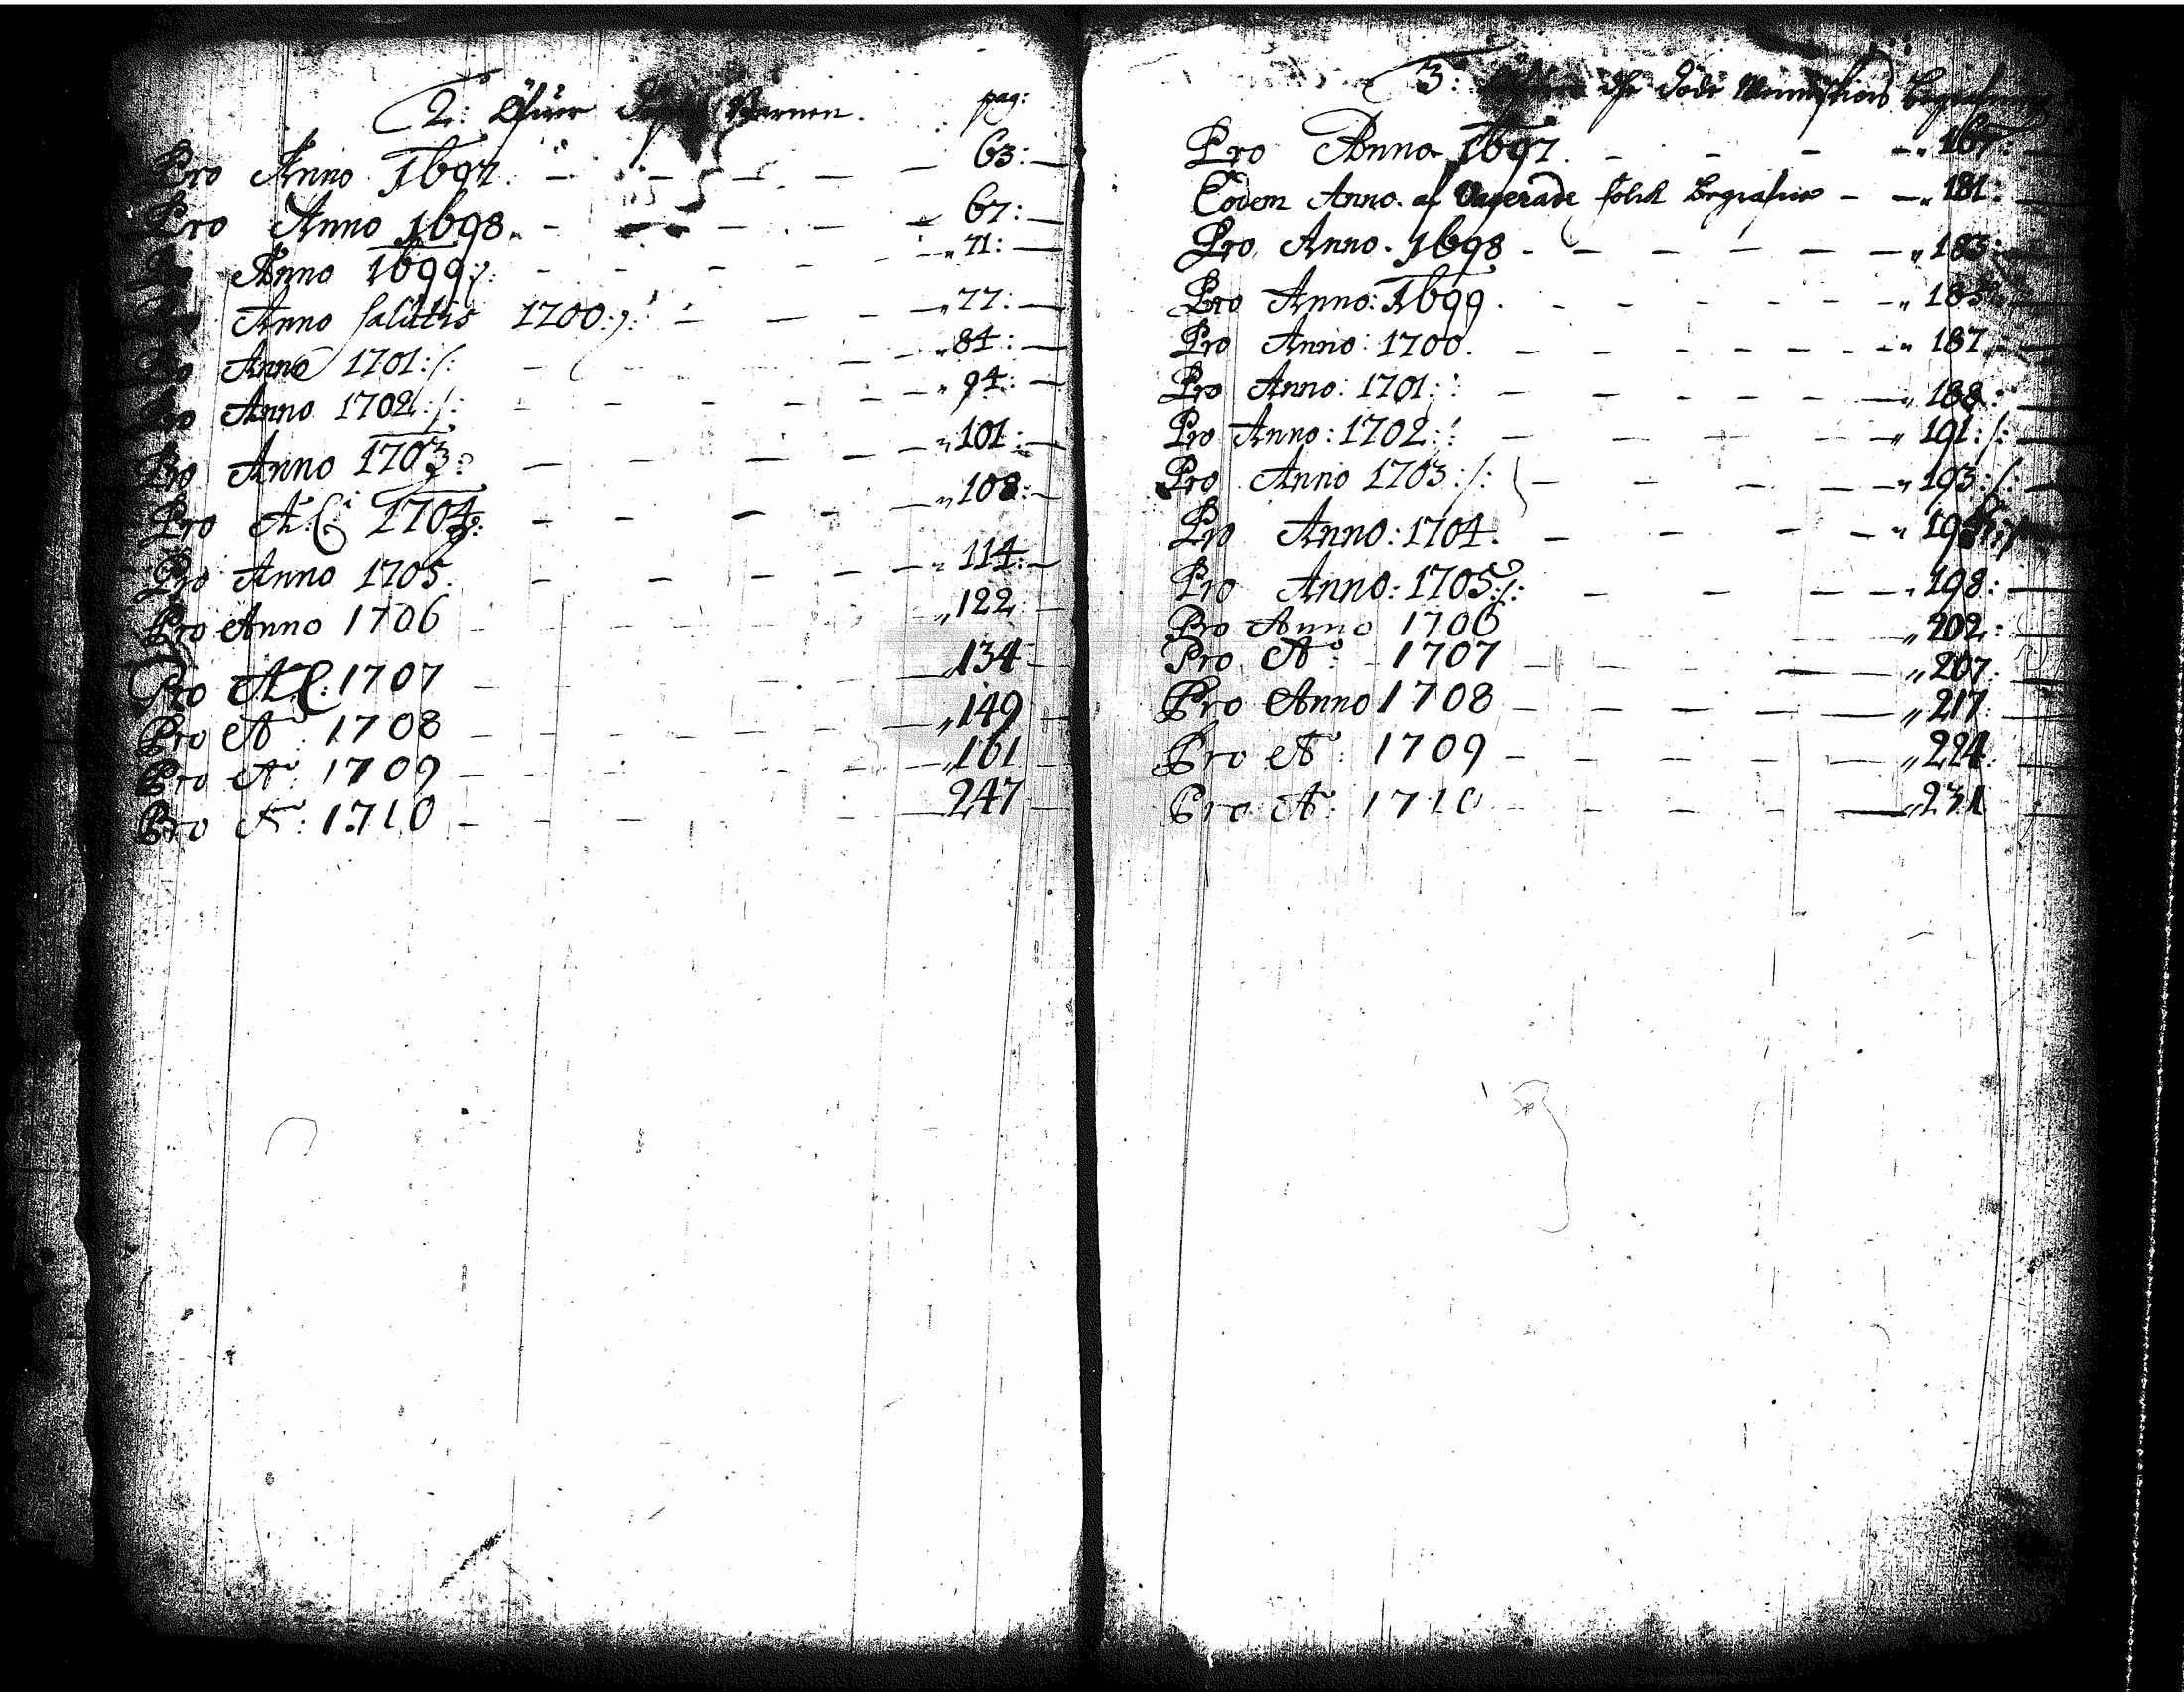 2: Öfwer Barnen. pag:
Pro Anno 1697. 63:
Pro Anno 1698. 67:
Anno 1699:/: 71:
Anno Salutis 1700:/: 77:
Pro Anno 1701:/: 84:
Pro Anno 1702:/: 94:
Pro Anno 1703: 101:
Pro A:C: 1704: 108:
Pro Anno 1705. 114:
Pro Anno 1706 122:
Pro A:C: 1707 134
Pro Ao: 1708 149
Pro Ao: 1709 161
Pro Ao: 1710 247
3: the Döde Menniskiors
Pro Anno 1697. 167:
Eodem Anno. af folck 181:
Pro Anno. 1698 183:
Pro Anno: 1699. 185
Pro Anno: 1700. 187
Pro Anno: 1701: 188:
Pro Anno: 1702: 191:/:
Pro Anno 1703:/: 193:/:
Pro Anno: 1704.
Pro Anno: 1705:/: 198:
Pro Anno 1706 202:
Pro Ao: 1707 207:
Pro Anno 1708 217
Pro Ao: 1709 224
Pro Ao: 1710 231